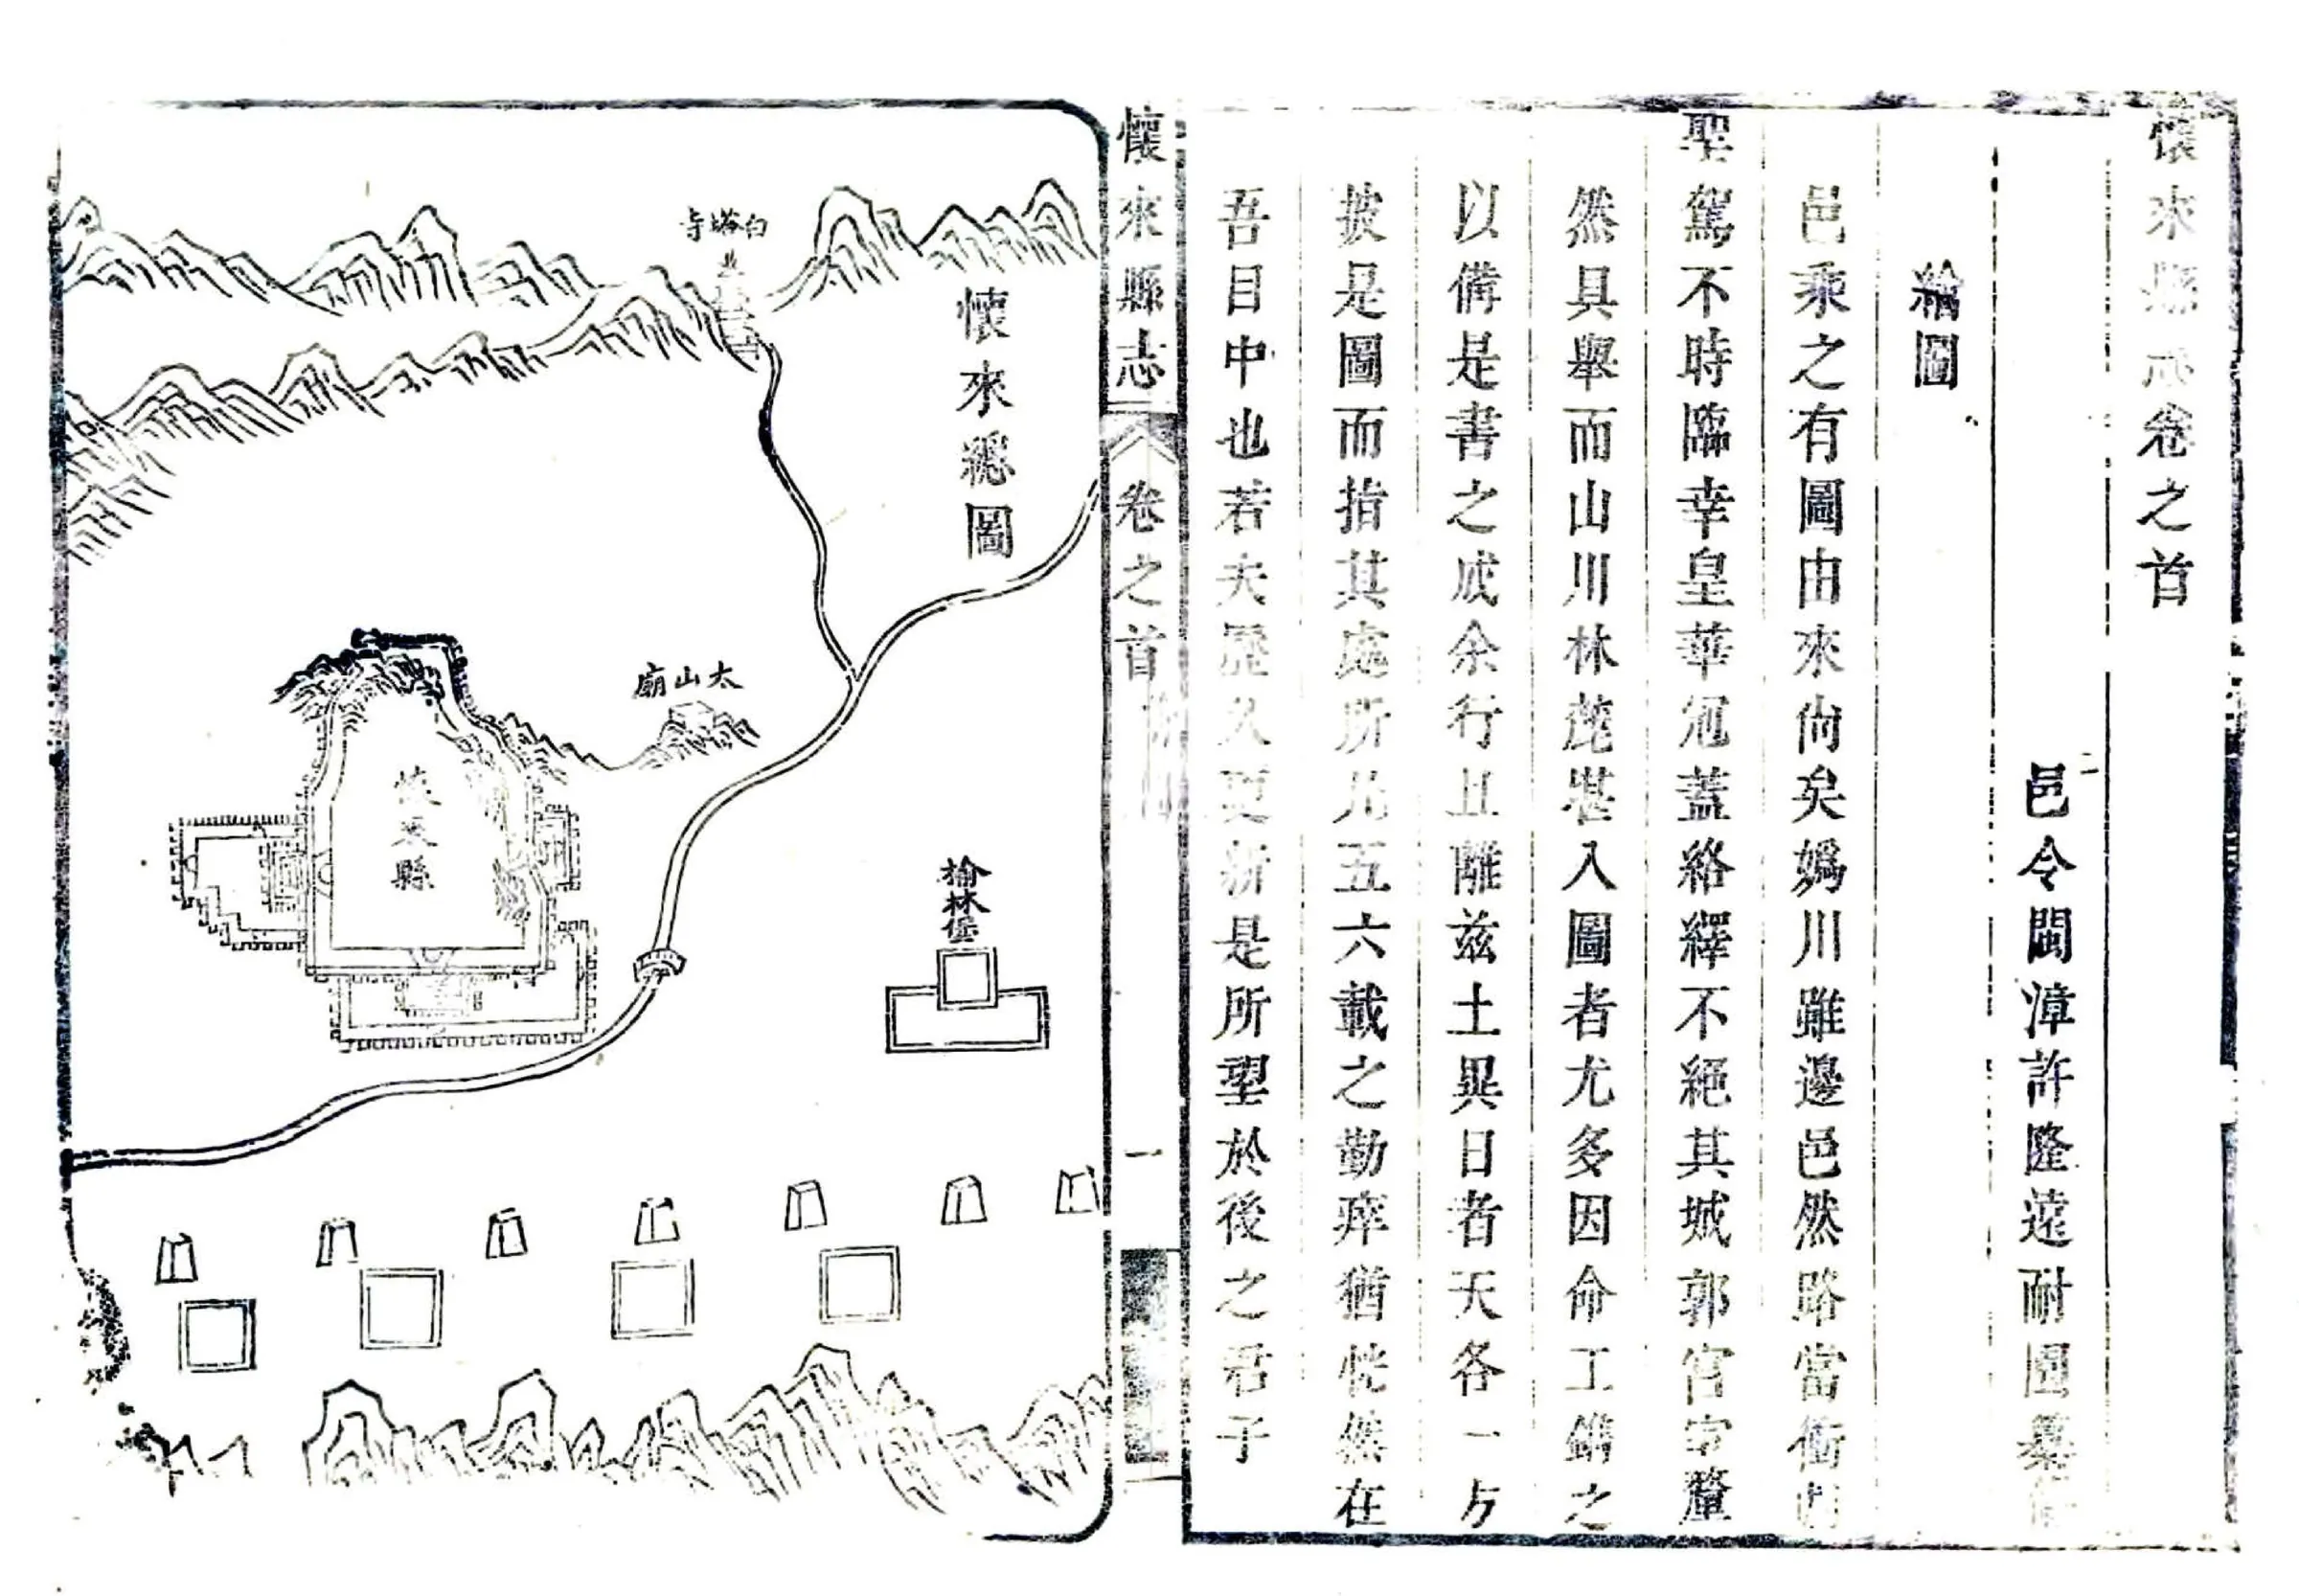 懷來縣志卷之首
邑令閩漳許隆遠耐圃纂
繪圖
邑乘之有圖由來尚矣媯川雖邊邑然路當衝
聖駕不時臨幸皇華冠蓋絡繹不絕其城郭官字釐
然具舉而山川林莽堪入圖者尤多因命工鐫之
以備是書之成余行且離茲土異日者天各一方
披是圖而指其處所凡五六載之勤瘁猶恍然在
吾目中也若夫歷久更新是所望於後之君子
懷來縣志
卷之首
一
懷來總圖
白塔寺
太山廟
懷來縣
榆林堡